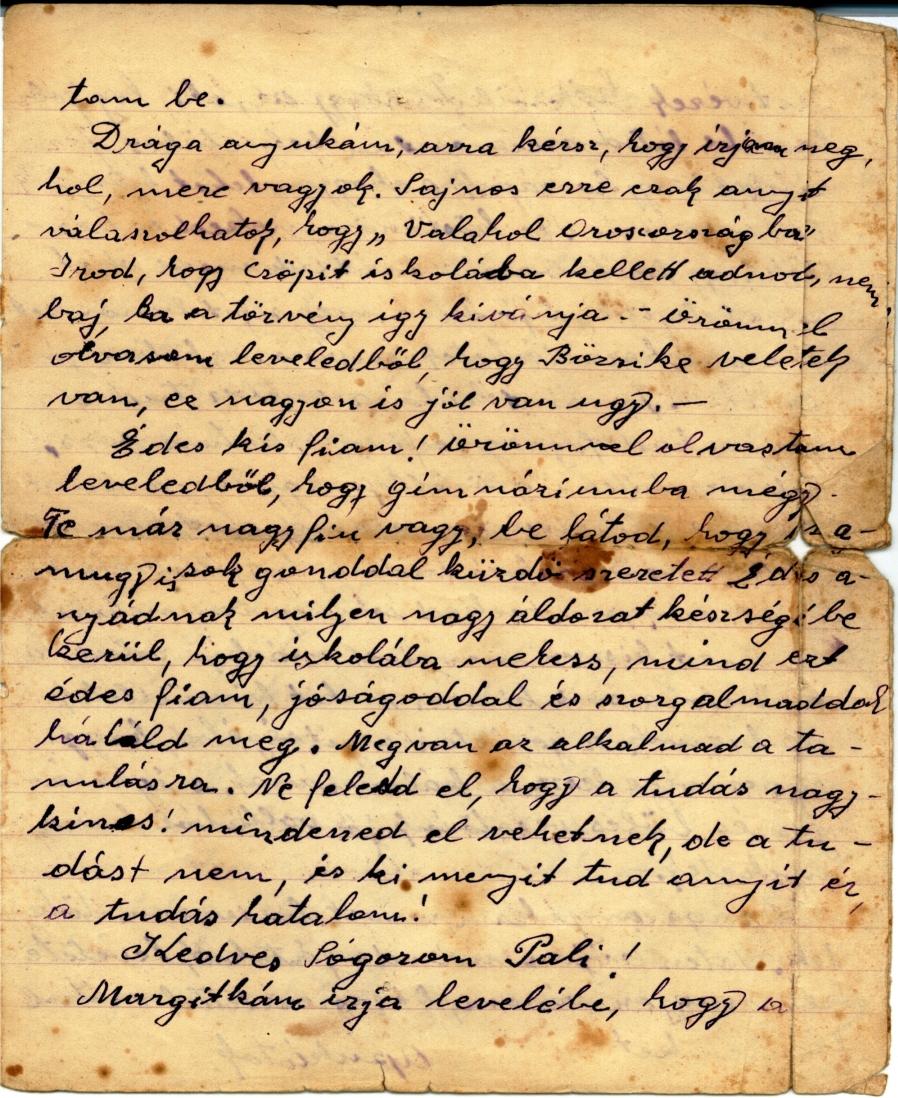 tam be.
Drága anyukám, arra kérsz, hogy írjam meg,
hol, mere vagyok. Sajnos erre csak anyit
válaszolhatok, hogy „Valahol Oroszországba"
Irod, hogy Csöpit iskolába kellett adnod, nem
baj, ha a törvény igy kivánja. - Örömmel
olvasom leveledből, hogy Bözsike veletek
van, ez nagyon is jól van ugy. —
Édes kis fiam! Örömmel olvastam
leveledből, hogy gimnáziumba mégy.
Te már nagy fiu vagy, be látod, hogy az a-
mugy is sok gonddal küzdő szeretett Édes a-
nyádnak milyen nagy áldozat készségébe
kerül, hogy iskolába mehess, mind ezt
édes fiam, jóságoddal és szorgalmaddal
háláld meg. Megvan az alkalmad a ta-
nulásra. Ne feledd el, hogy a tudás nagy-
kincs! mindened el vehetnek, de a tu-
dást nem, és ki menyit tud anyit ér,
a tudás hatalom!
Kedves Sógorom Pali!
Margitkám irja levelébe, hogy a